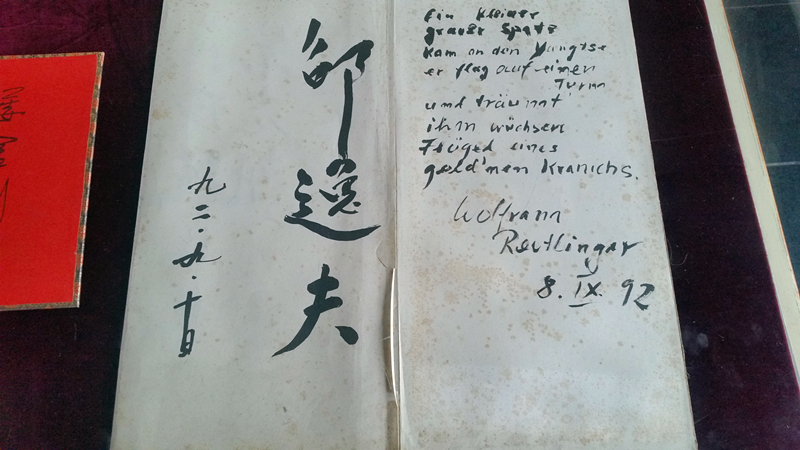 邵逸夫
九二.九.十日
Ein kleiner
grauer Spatz
kam an den Yangtse
er flog auf einen
Turm
und träumt
ihm wüchsen
Flügel eines
gold'nen Kranichs.
Wolfram
Reutlinger
8. IX. 92